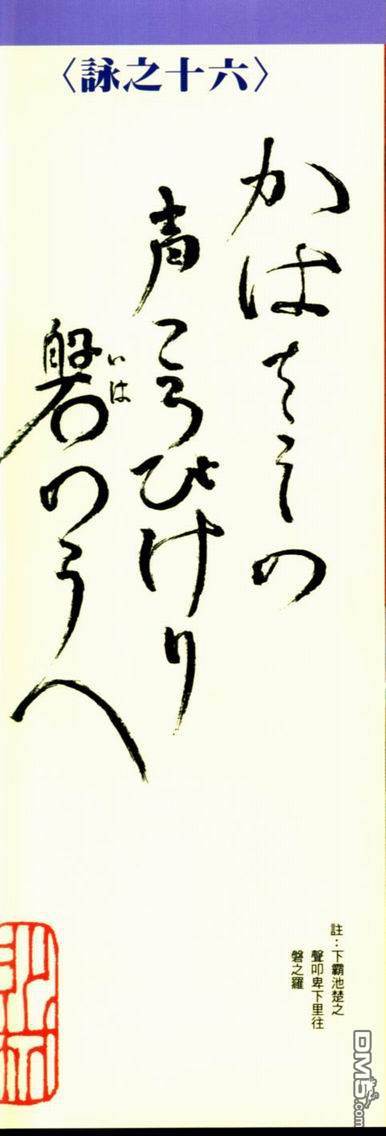 〈詠之十六〉
かはせみの
声ころびけり
磐のうへ
いは
註：下霸池楚之
聲叩卑下里往
磐之羅
DM5.com